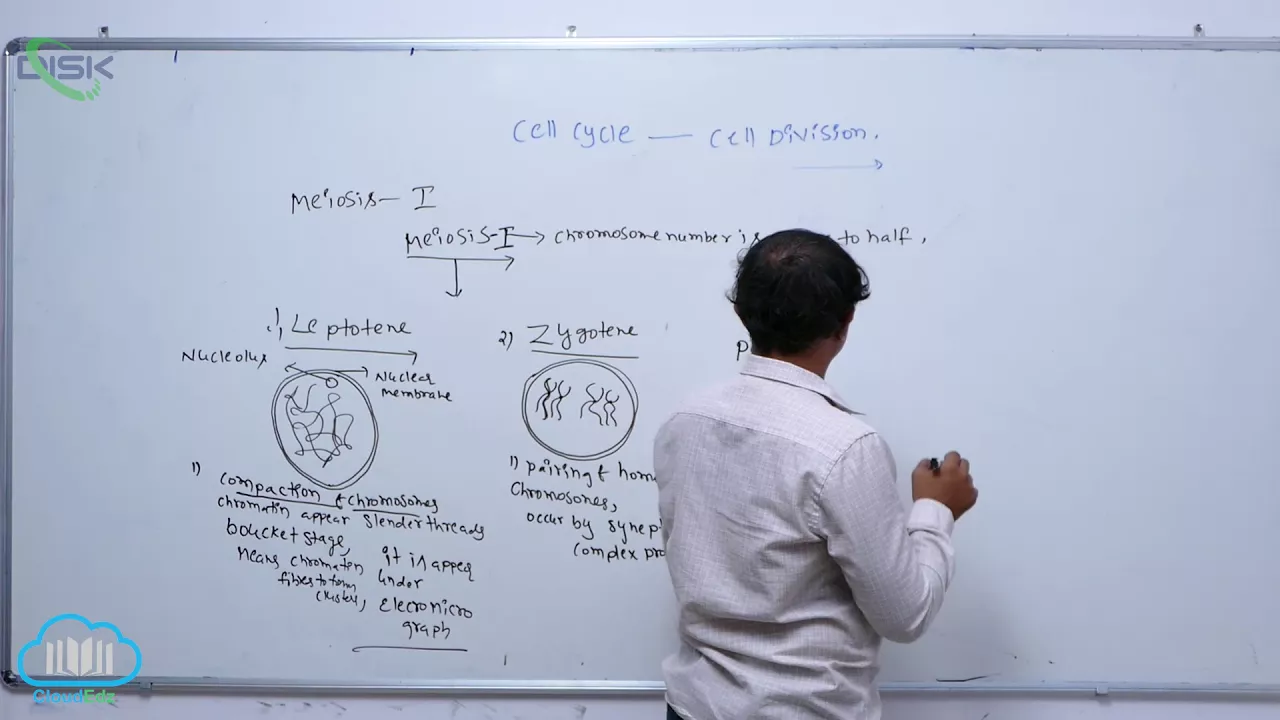 DISK
Cell Cycle — Cell Division.
Meiosis – I
Meiosis-I → chromosome number is to half,
1) Leptotene
Nucleolus
Nuclear
membrane
1)
compaction of chromosomes
chromatin appear slender threads
boucket stage,
Means chromaten
fibres to form
clusters,
it is appear
under
elecromicro
graph
2) Zygotene
1) pairing of homo
Chromosones,
occur by synept
complex pro
P
CloudEdz